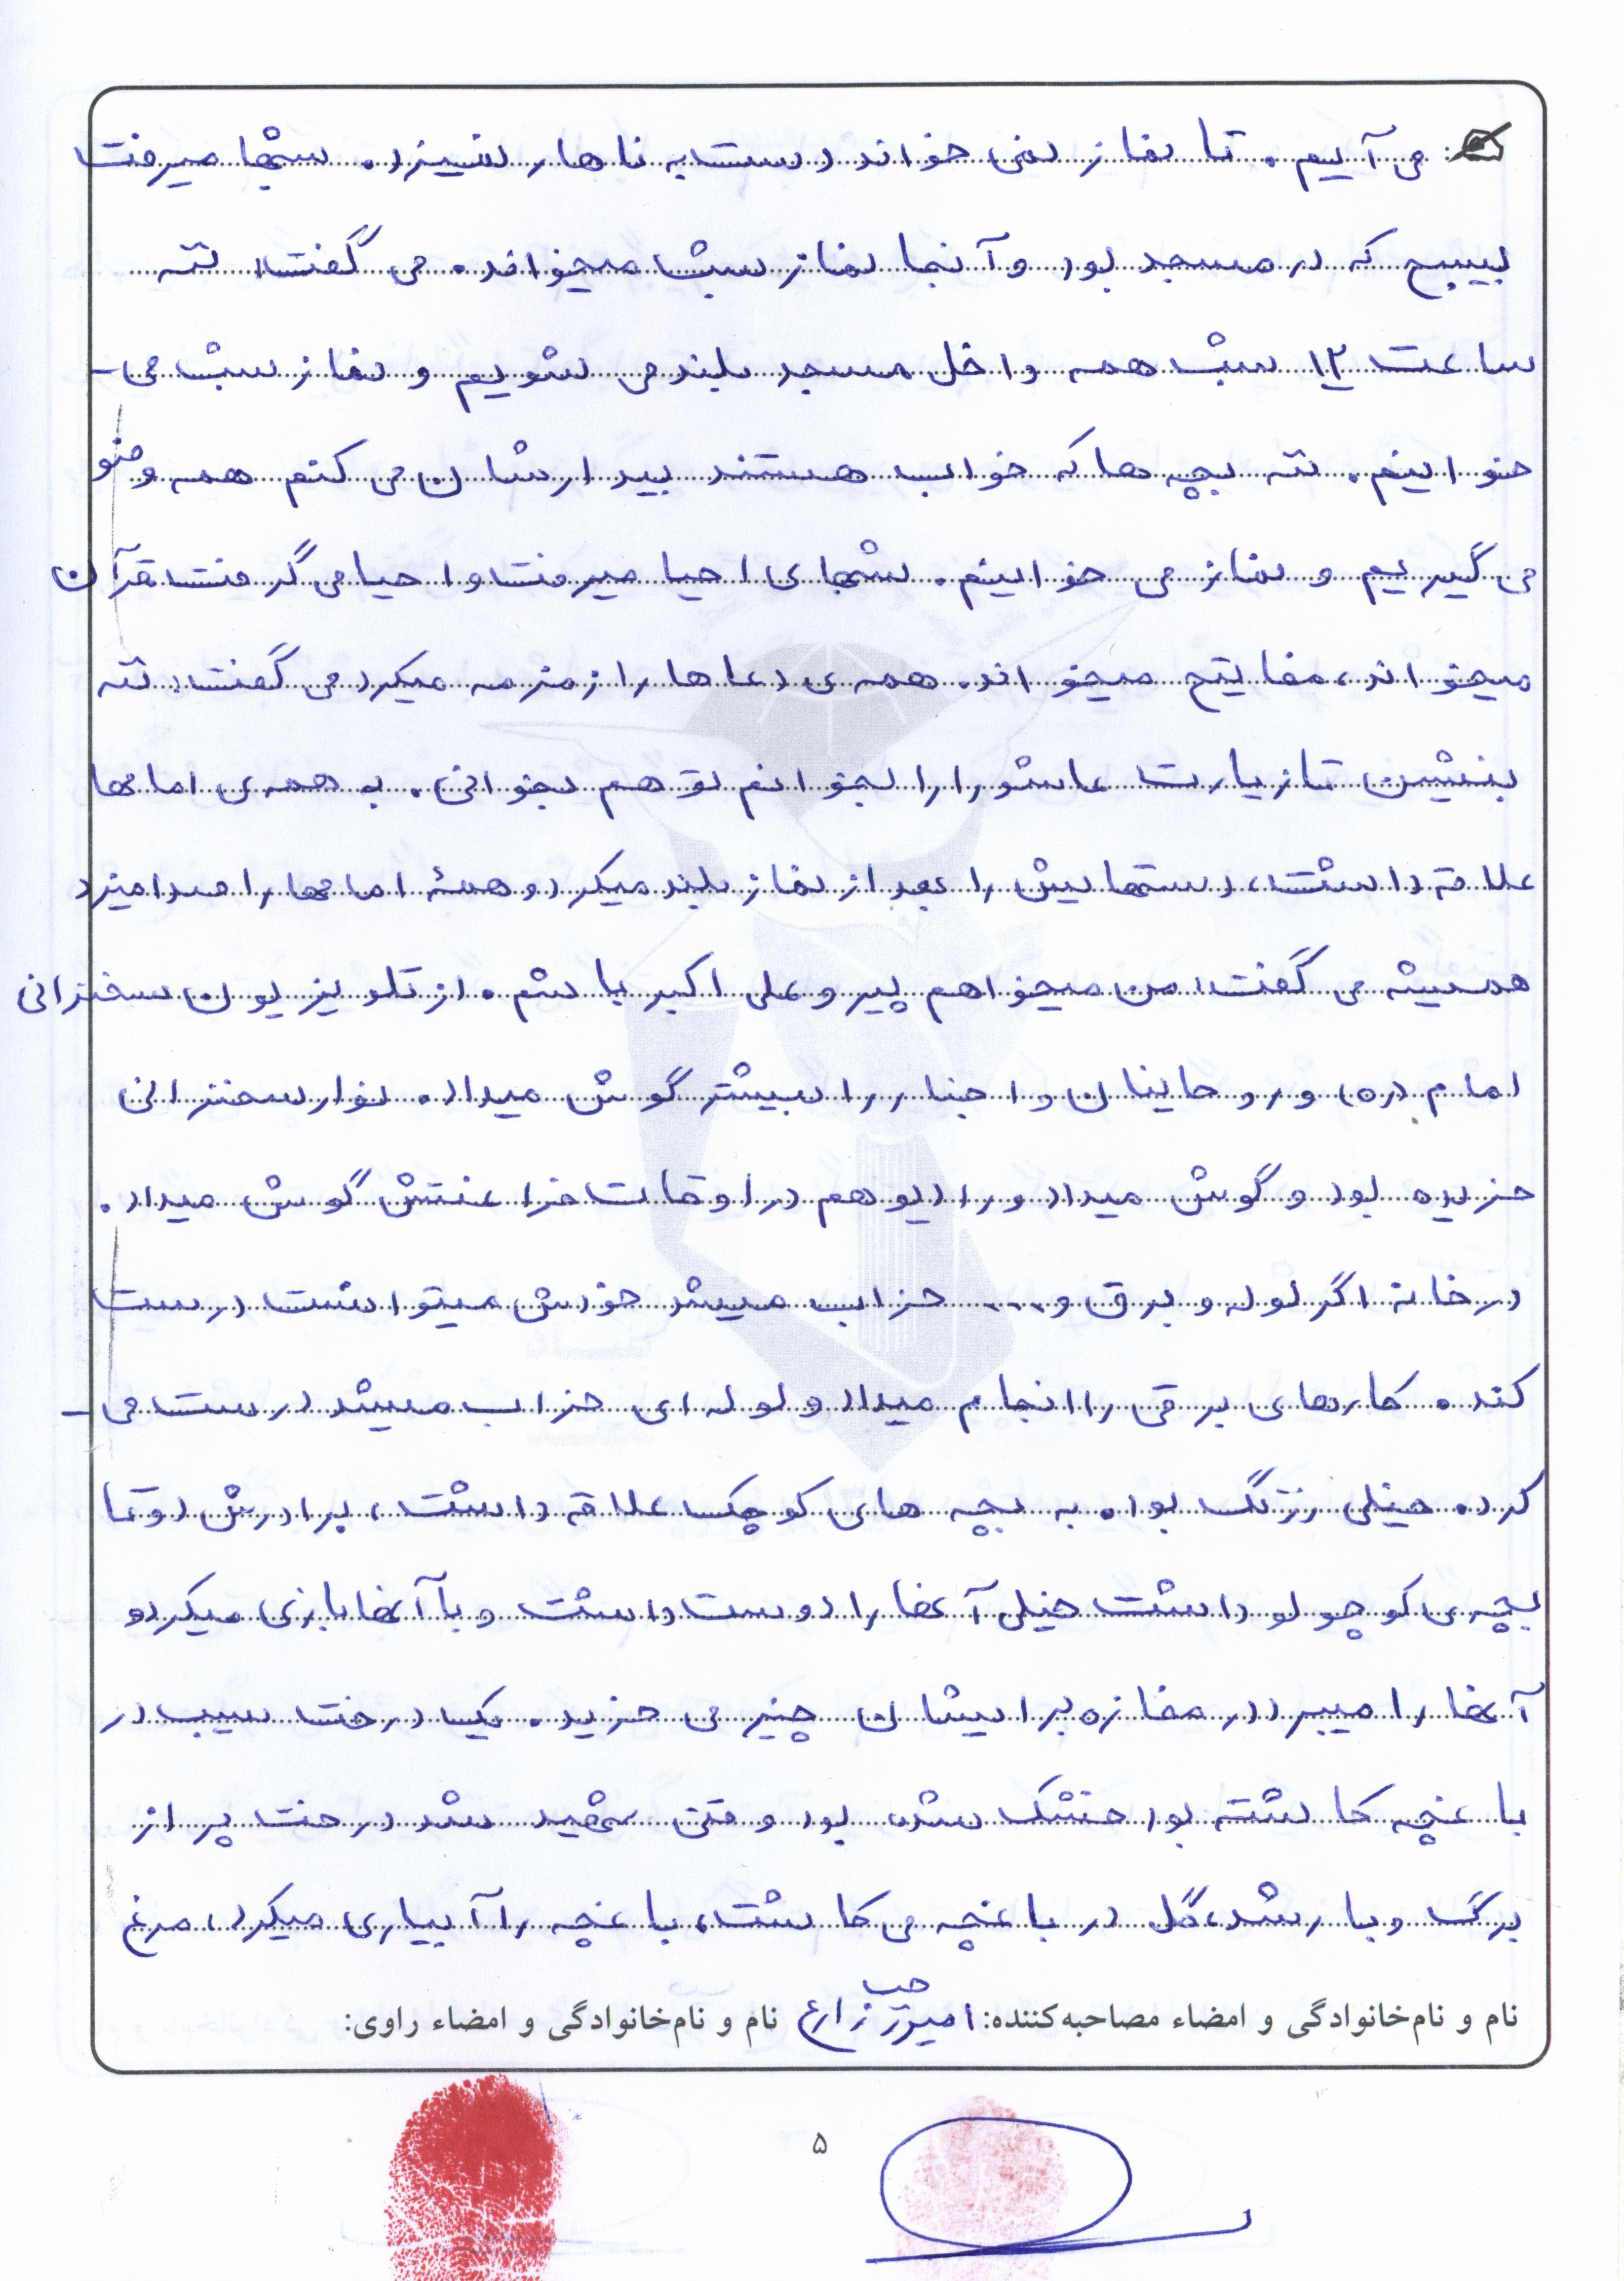 می آییم. تا نماز نمی خواند دست به ناهار نمیزد. شبها میرفت
بسیج که در مسجد بود و آنجا نماز شب میخواند. می گفت: ننه
ساعت ۱۲ شب همه داخل مسجد بلند می شویم و نماز شب می-
خوانیم. ننه بچه ها که خواب هستند بیدارشان می کنم همه وضو
می گیریم و نماز می خوانیم. شبهای احیا میرفت و احیا می گرفت قرآن
میخواند، مفاتیح میخواند. همه ی دعاها را زمزمه میکرد می گفت: ننه
بنشین تا زیارت عاشورا را بخوانم تو هم بخوانی. به همه ی امامها
علاقه داشت، دستهایش را بعد از نماز بلند میکرد و همهٔ امامها را صدا میزد
همیشه می گفت: من میخواهم پیرو علی اکبر باشم. از تلویزیون سخنرانی
امام (ره) و روحانیان و اخبار را بیشتر گوش میداد. نوار سخنرانی
خریده بود و گوش میداد و رادیو هم در اوقات فراغتش گوش میداد.
در خانه اگر لوله و برق و .... خراب میشد خودش میتوانست درست
کند. کارهای برقی را انجام میداد و لوله ای خراب میشد درست می-
کرد. خیلی زرنگ بود. به بچه های کوچک علاقه داشت، برادرش دو تا
بچه ی کوچولو داشت خیلی آنها را دوست داشت و با آنها بازی میکرد و
آنها را میبرد در مغازه برایشان چیز می خرید. یک درخت سیب در
باغچه کاشته بود خشک شده بود وقتی شهید شد درخت پر از
برگ و بار شد، گل در باغچه می کاشت، باغچه را آبیاری میکرد، مرغ
نام و نام‌خانوادگی و امضاء مصاحبه‌کننده: امیر زارع نام و نام‌خانوادگی و امضاء راوی:
۵